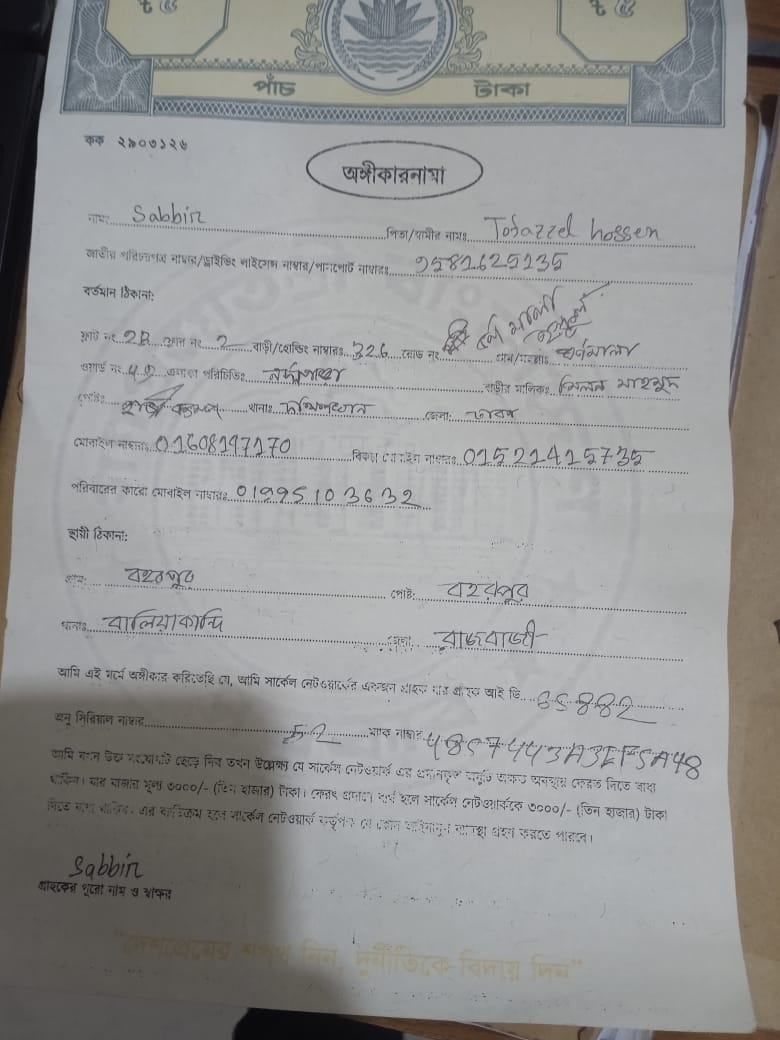 ৳ ৫ ৳ ৫
পাঁচ টাকা
কক ২৯০৩১২৬
অঙ্গীকারনামা
নামঃ Sabbir পিতা/স্বামীর নামঃ Tofazzel hossen
জাতীয় পরিচয়পত্র নাম্বার/ড্রাইভিং লাইসেন্স নাম্বার/পাসপোর্ট নাম্বারঃ 9581625135
বর্তমান ঠিকানা:
ফ্লাট নং 2B ফ্লোর নং 2 বাড়ী/হোল্ডিং নাম্বারঃ 326 রোড নং
ওয়ার্ড নং এলাকা পরিচিতিঃ নর্দ্দাপাড়া বাড়ীর মালিকঃ মিলন মাহমুদ
পোষ্টঃ থানাঃ দক্ষিনখান জেলা: ঢাকা
মোবাইল নাম্বারঃ 01608197170 বিকাশ মোবাইল নাম্বারঃ 01521415735
পরিবারের কারো মোবাইল নাম্বারঃ 01995103632
স্থায়ী ঠিকানা:
গ্রাম: বহরপুর পোষ্ট: বহরপুর
থানাঃ বালিয়াকান্দি জেলা: রাজবাড়ী
আমি এই মর্মে অঙ্গীকার করিতেছি যে, আমি সার্কেল নেটওয়ার্কের একজন গ্রাহক যার গ্রাহক আই ডি 65882
অনু সিরিয়াল নাম্বার 52 ম্যাক নাম্বার 4857443A3EF5A48
আমি যখন উক্ত সংযোগটি ছেড়ে দিব তখন উল্লেখ্য যে সার্কেল নেটওয়ার্ক এর প্রদানকৃত অক্ষত অবস্থায় ফেরত দিতে বাধ্য
থাকিব। যার বাজার মূল্য ৩০০০/- (তিন হাজার) টাকা। ফেরৎ প্রদানে ব্যর্থ হলে সার্কেল নেটওয়ার্ককে ৩০০০/- (তিন হাজার) টাকা
দিতে বাধ্য থাকিব। এর ব্যতিক্রম হলে সার্কেল নেটওয়ার্ক কর্তৃপক্ষ যে কোন আইনানুগ ব্যবস্থা গ্রহন করতে পারবে।
Sabbir
গ্রাহকের পুরো নাম ও স্বাক্ষর
"দেশপ্রেমের শপথ নিন, দুর্নীতিকে বিদায় দিন"